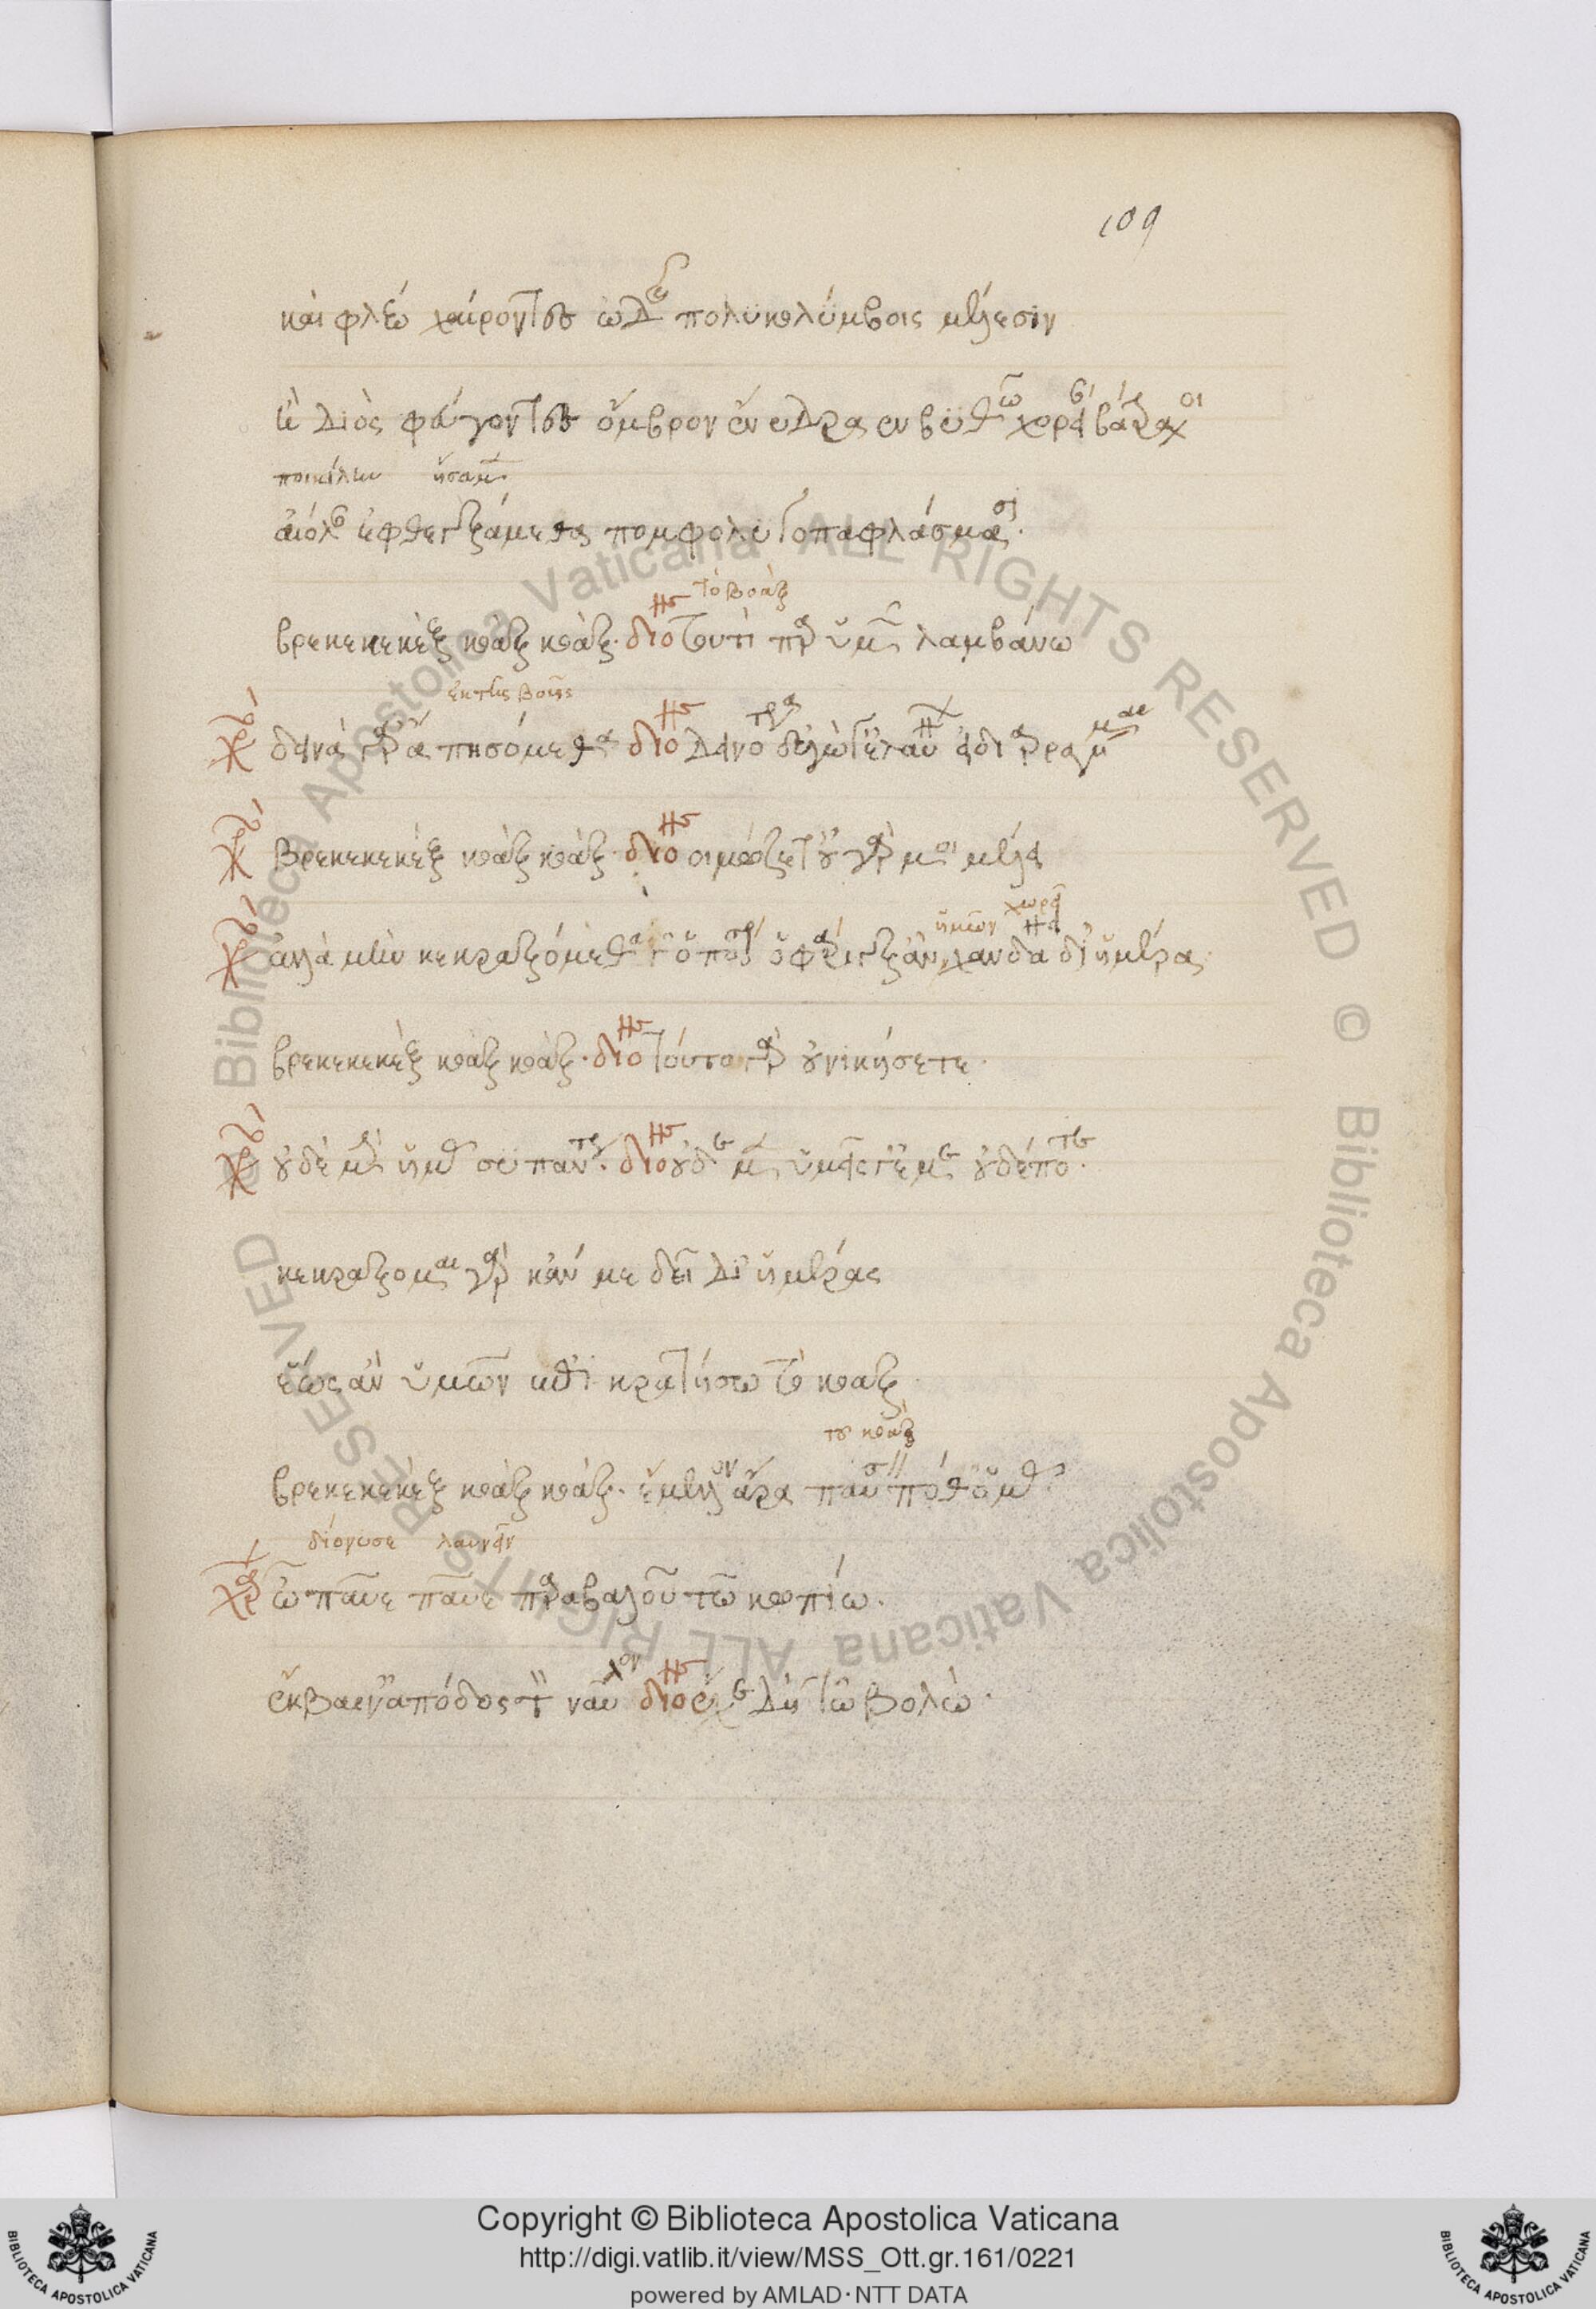 109
καὶ φλέω χαίροντες ὠδῆς πολυκολύμβοις μέλεσιν
ἢ Διὸς φεύγοντες ὄμβρον ἔνυδρον ἐν βυθῷ χορείαν
ποικίλην
αἰόλαν ἐφθεγξάμεσθα πομφολυγοπαφλάσμασιν.
τὸ κοάξ
βρεκεκεκὲξ κοὰξ κοάξ. διο τουτὶ παρ' ὑμῶν λαμβάνω
ἐκ τῆς βοῆς
χο δεινά γ' ἄρα πεισόμεσθα διο δεινότερα δ' ἔγωγ' ἐλαύνων εἰ διαρραγήσομαι
χο βρεκεκεκὲξ κοὰξ κοάξ. διο οἰμώζετ' οὐ γάρ μοι μέλει
ἡμῶν
χο ἀλλὰ μὴν κεκραξόμεσθά γ' ὁπόσον ἡ φάρυγξ ἂν ἡμῶν χανδάνῃ δι' ἡμέρας
βρεκεκεκὲξ κοὰξ κοάξ. διο τούτῳ γὰρ οὐ νικήσετε.
χο οὐδὲ μὴν ἡμᾶς σὺ πάντως. διο οὐδὲ μὴν ὑμεῖς γ' ἐμὲ οὐδέποτε.
κεκράξομαι γὰρ κἄν με δεῖ δι' ἡμέρας
ἕως ἂν ὑμῶν ἐπικρατήσω τῷ κοάξ
τοῦ κοάξ
βρεκεκεκὲξ κοὰξ κοάξ. ἔμελλον ἄρα παύσειν ποθ' ὑμᾶς
διόνυσε
χαρ ὢ παῦε παῦε παραβαλοῦ τῷ κωπίῳ.
ἔκβαιν' ἀπόδος τὸν ναῦλον διο ἔχε δὴ τὠβολώ.
Copyright © Biblioteca Apostolica Vaticana
http://digi.vatlib.it/view/MSS_Ott.gr.161/0221
powered by AMLAD·NTT DATA